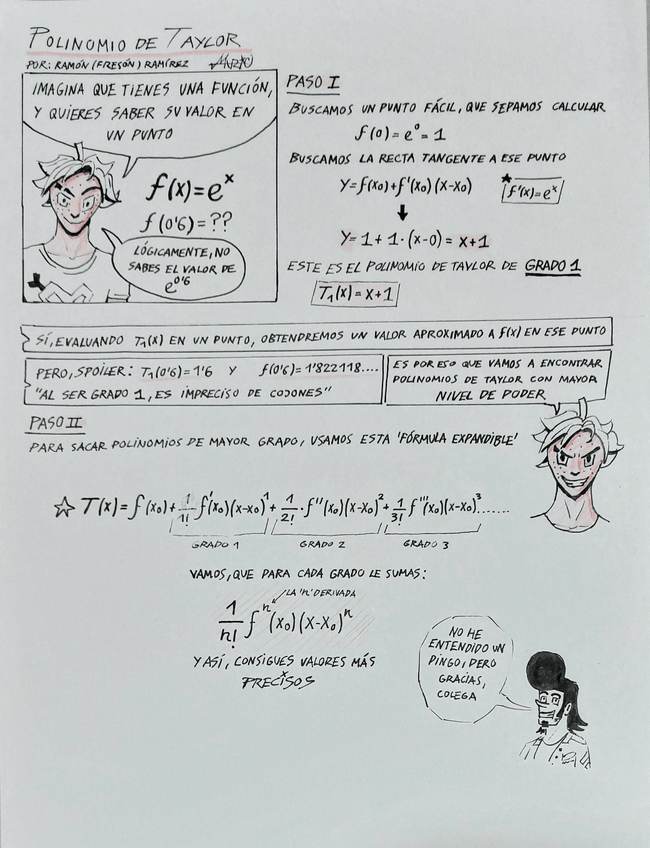 POLINOMIO DE TAYLOR
POR: RAMÓN (FRESÓN) RAMÍREZ
IMAGINA QUE TIENES UNA FUNCIÓN,
Y QUIERES SABER SU VALOR EN
UN PUNTO
f(x)=e^x
f(0'6)=??
LÓGICAMENTE, NO
SABES EL VALOR DE
e^0'6
PASO I
BUSCAMOS UN PUNTO FÁCIL, QUE SEPAMOS CALCULAR
f(0)=e^0=1
BUSCAMOS LA RECTA TANGENTE A ESE PUNTO
Y=f(x₀)+f'(x₀)(x-x₀) ★ f'(x)=e^x
Y=1+1·(x-0)=x+1
ESTE ES EL POLINOMIO DE TAYLOR DE GRADO 1
T₁(x)=x+1
SÍ, EVALUANDO T₁(x) EN UN PUNTO, OBTENDREMOS UN VALOR APROXIMADO A f(x) EN ESE PUNTO
PERO, SPOILER: T₁(0'6)=1'6 Y f(0'6)=1'822118....
"AL SER GRADO 1, ES IMPRECISO DE COJONES"
ES POR ESO QUE VAMOS A ENCONTRAR
POLINOMIOS DE TAYLOR CON MAYOR
NIVEL DE PODER
PASO II
PARA SACAR POLINOMIOS DE MAYOR GRADO, USAMOS ESTA 'FÓRMULA EXPANDIBLE'
☆ T(x)=f(x₀)+1/1! f'(x₀)(x-x₀)^1+1/2!·f''(x₀)(x-x₀)^2+1/3! f'''(x₀)(x-x₀)^3.......
GRADO 1 GRADO 2 GRADO 3
VAMOS, QUE PARA CADA GRADO LE SUMAS:
LA 'n' DERIVADA
1/n! f^n(x₀)(x-x₀)^n
Y ASÍ, CONSIGUES VALORES MÁS
PRECISOS
NO HE
ENTENDIDO UN
PINGO, PERO
GRACIAS,
COLEGA